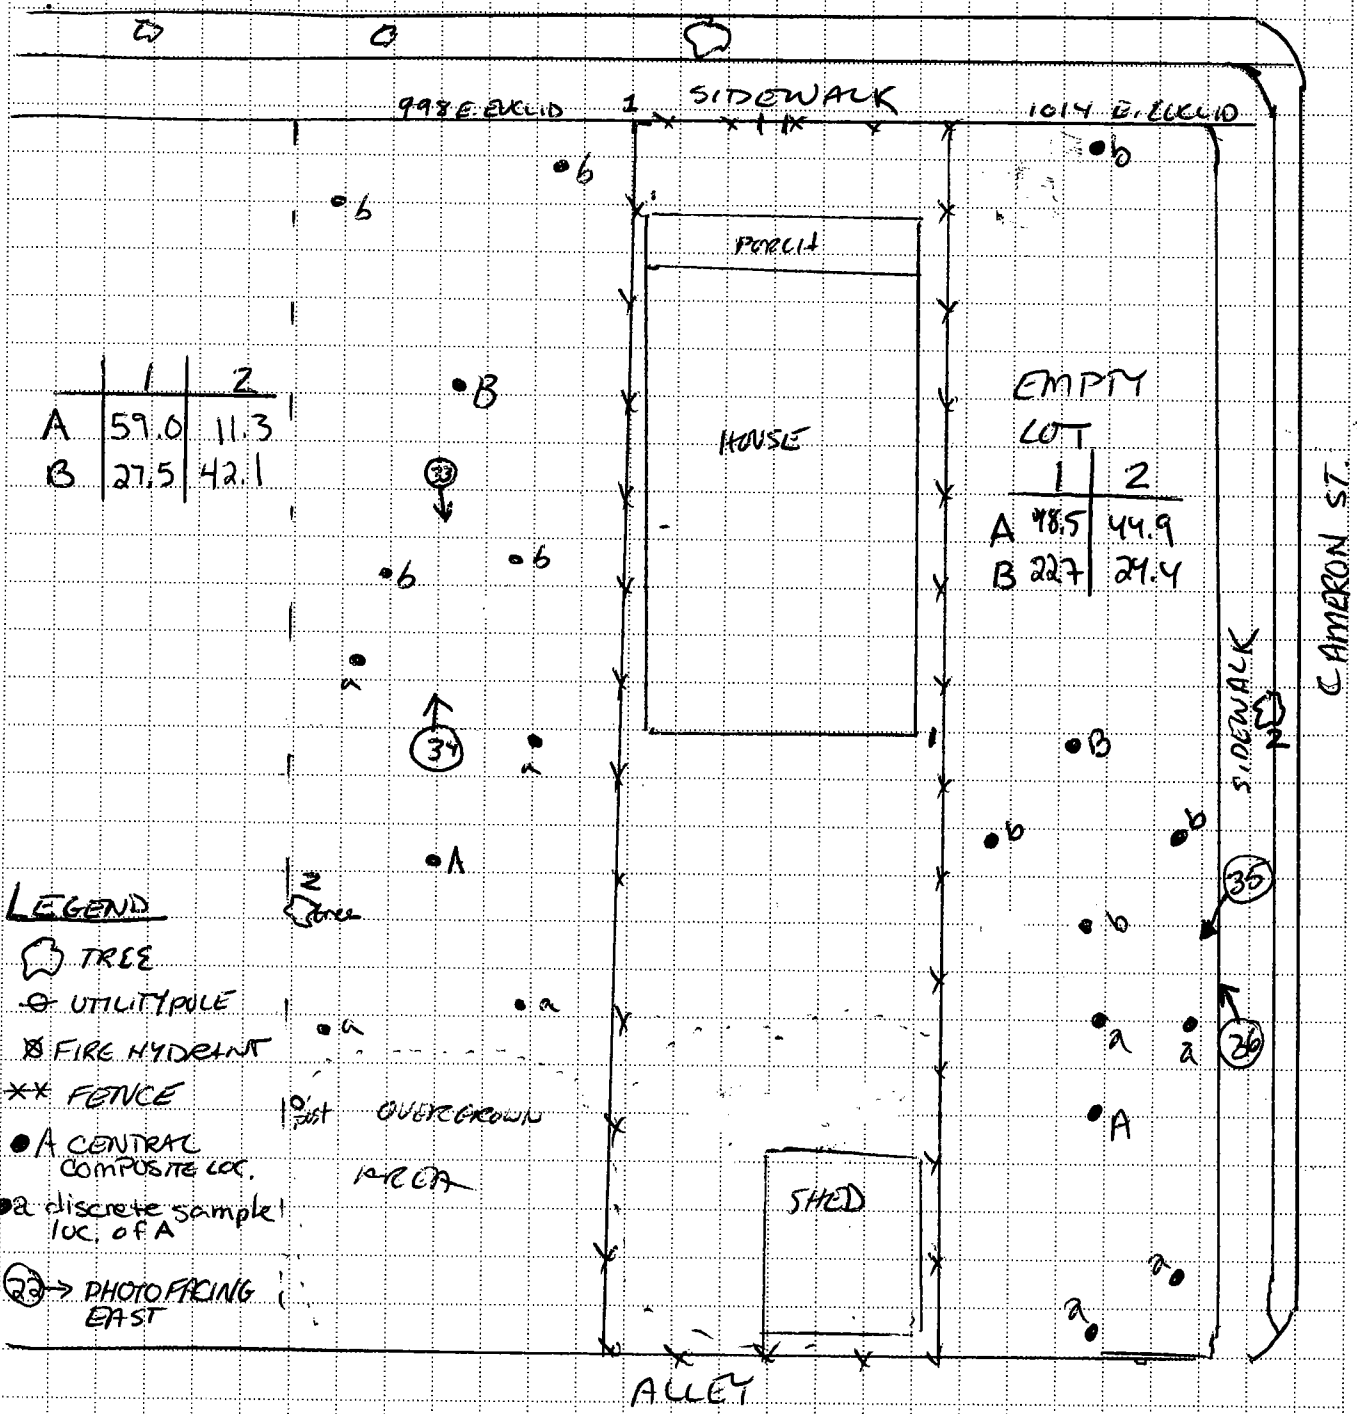 998 E. EUCLID
1
SIDEWALK
1014 E. EUCLID
b
b
b
PORCH
1 2
A 59.0 11.3
B 27.5 42.1
B
33
HOUSE
EMPTY
LOT
1 2
A 48.5 44.9
B 227 29.4
CAMERON ST.
b
b
a
34
a
SIDEWALK
2
1
B
b
b
A
2
tree
35
b
LEGEND
TREE
UTILITY POLE
FIRE HYDRANT
XX FENCE
A CENTRAL
COMPOSITE LOC.
a discrete sample
loc. of A
33 → PHOTO FACING
EAST
a
a
a
a
36
OVERGROWN
AREA
A
SHED
a
a
ALLEY